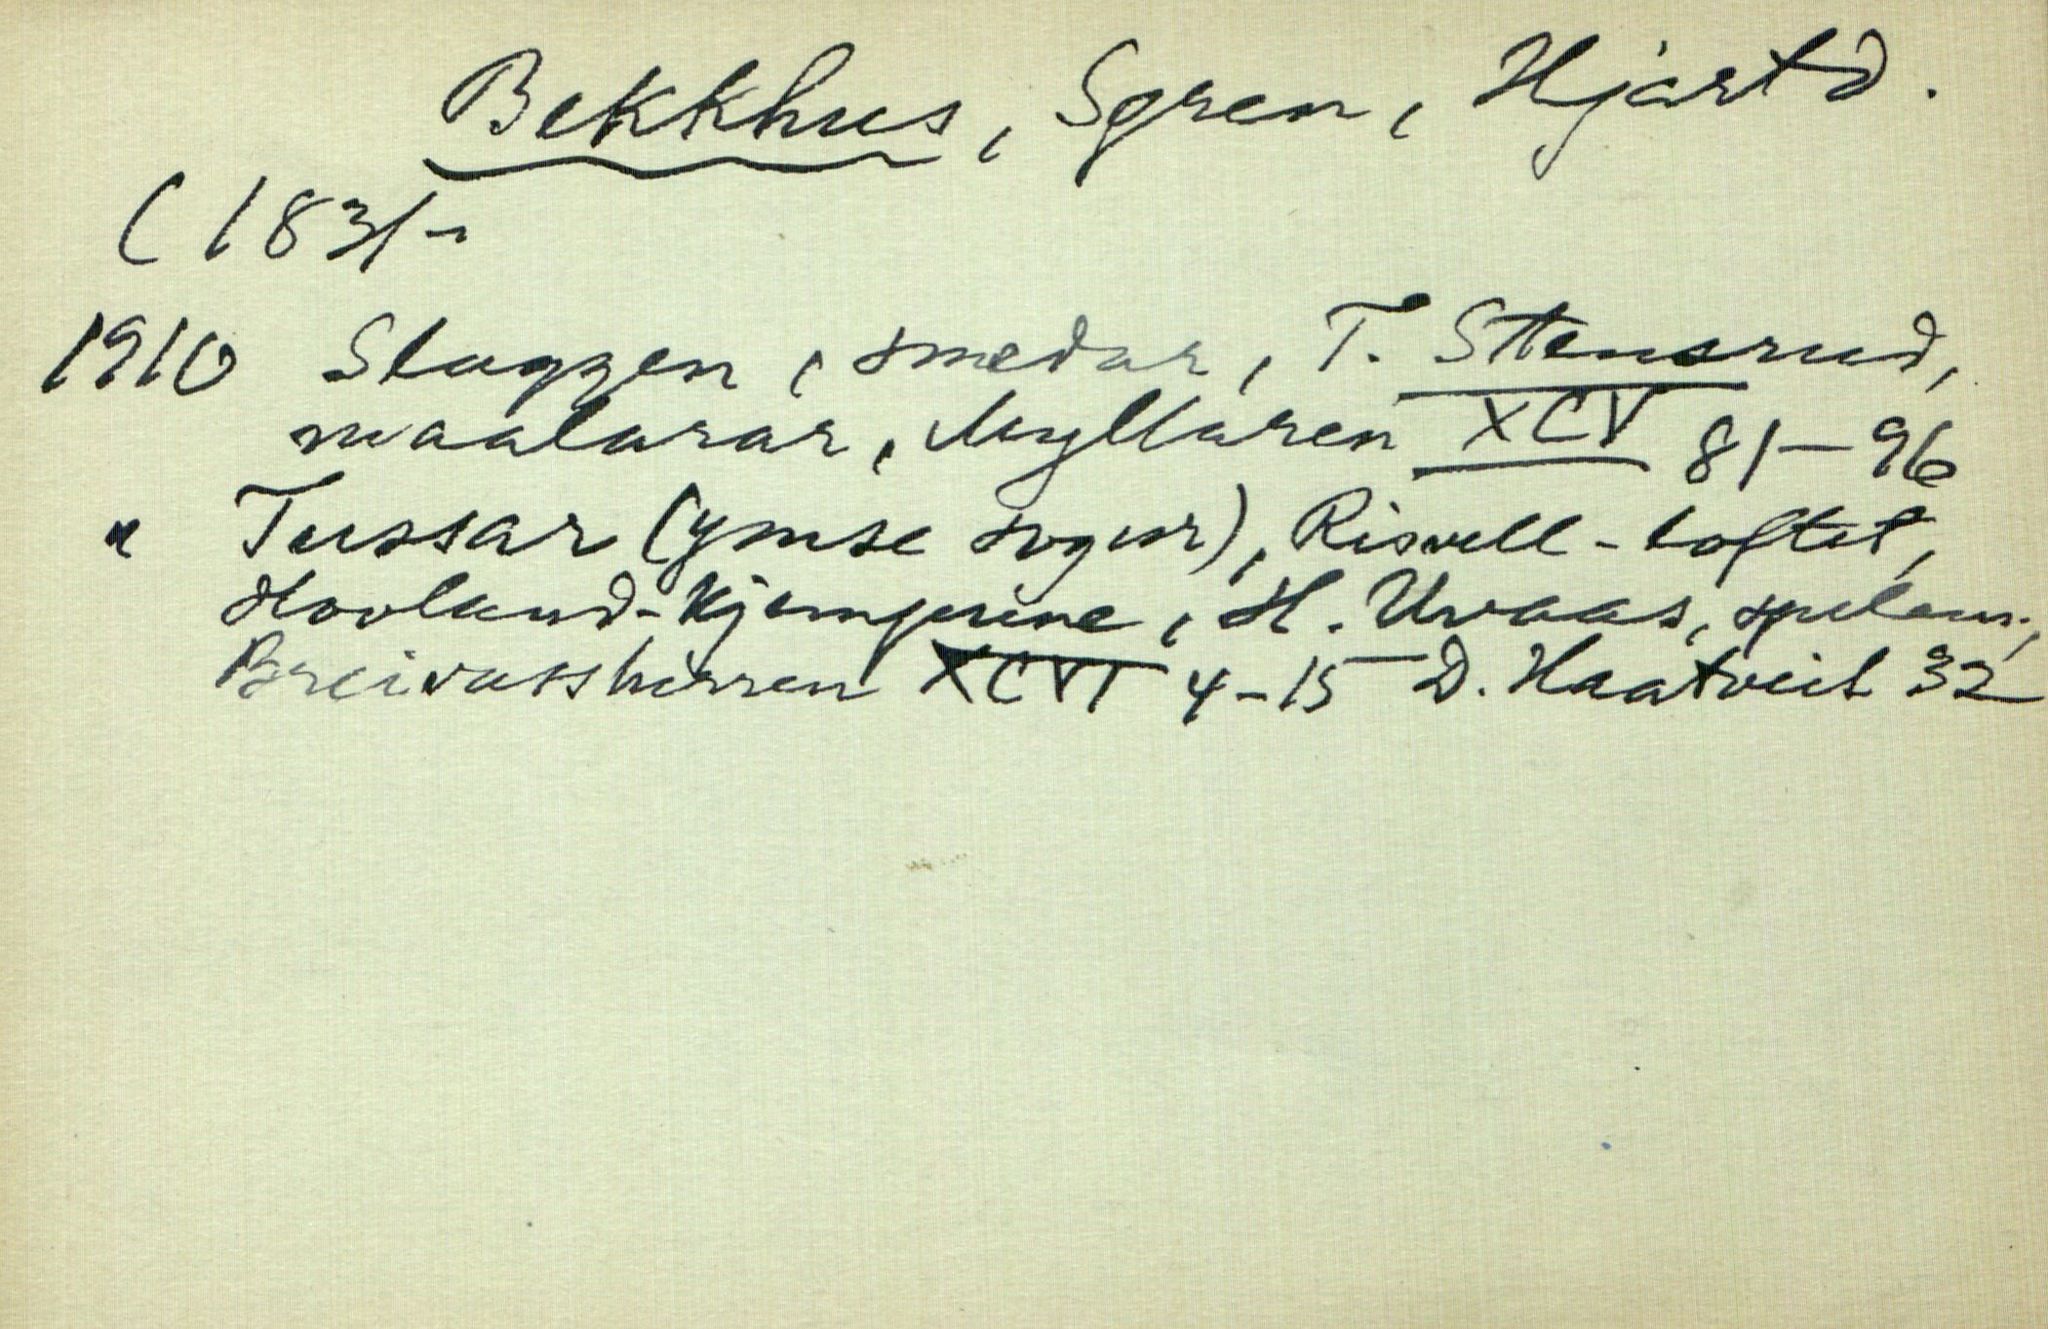 Bekkhus, Sgren, Hjartd.
(1831-
1910 Sluggen, smedar, T. Stensrud,
maalarar, Myllaren XCV 81-96
" Tussar (ymse sogur), Risvell-loftet,
Hovland-Kjempune, H. Uvaas, spelem.,
XCVI 4-15 D. Haatveit 32